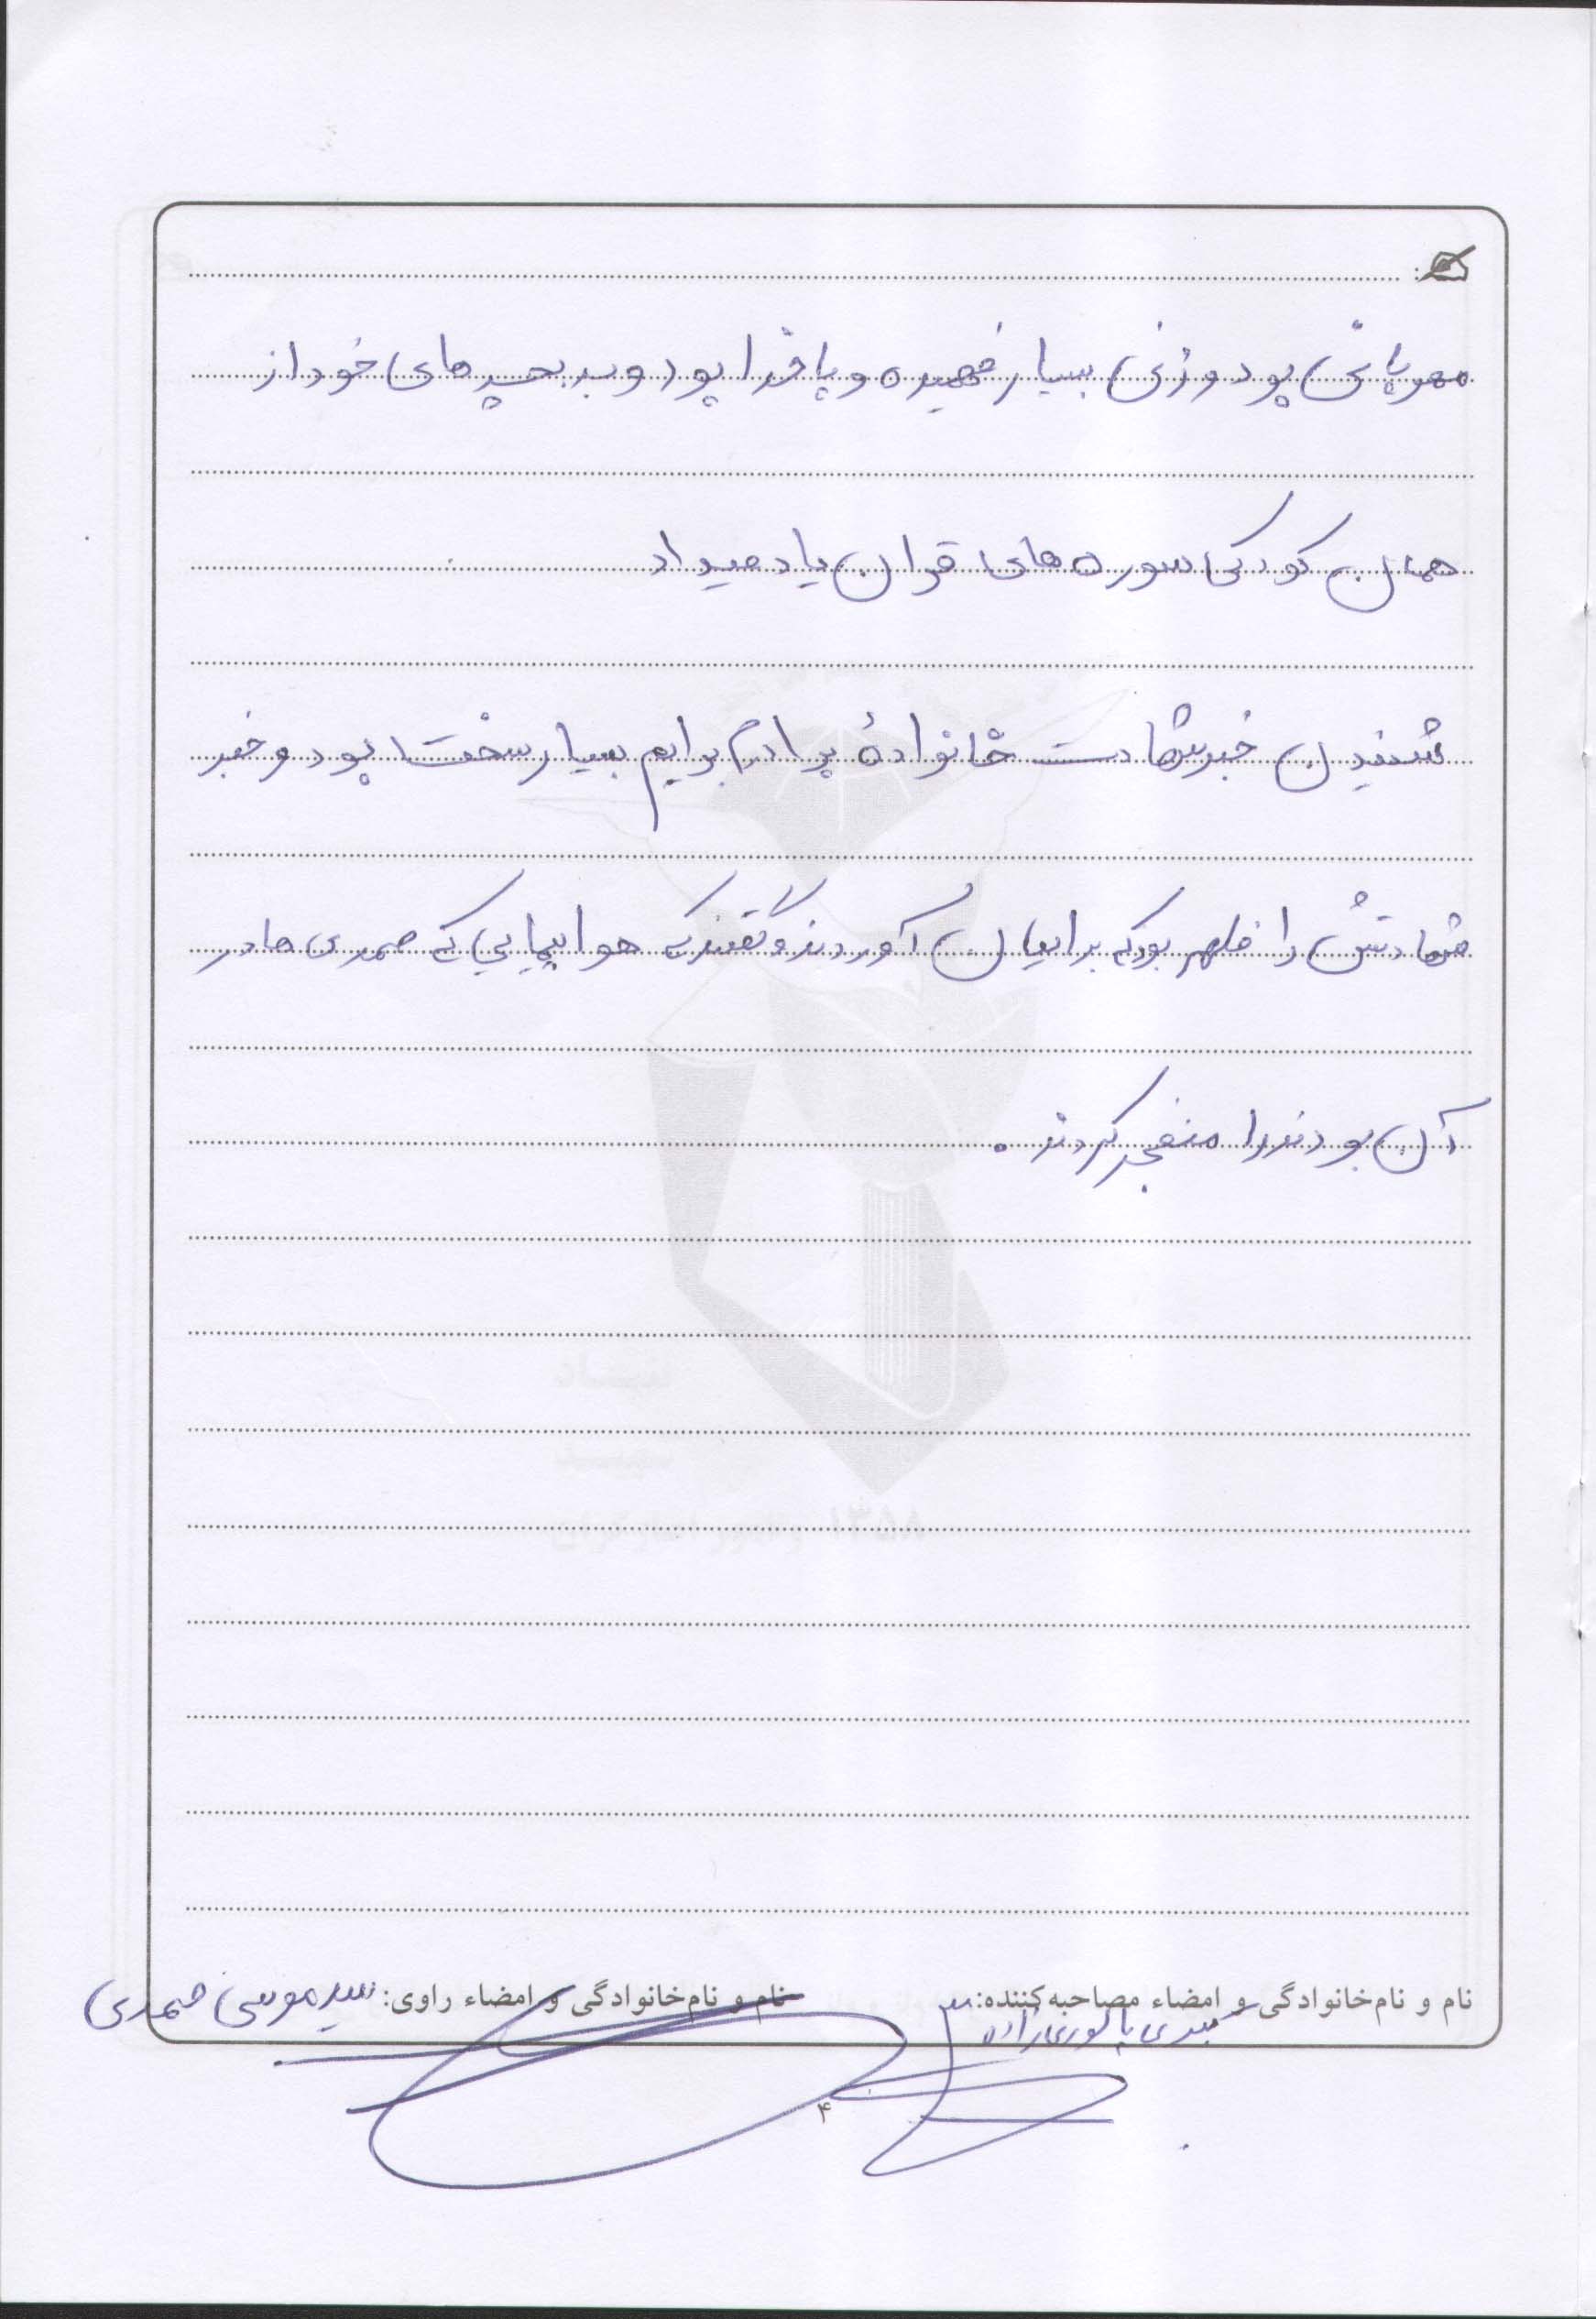 مهربانی بود و زنی بسیار فهمیده و با خدا بود و به بچه های خود از
همان کودکی سوره های قران یاد میداد
شنیدن خبر شهادت خانوادهٔ برادرم برایم بسیار سخت بود و خبر
شهادتش را ظهر بود که برایمان آوردند و گفتند که هواپیمایی که صمدی ها در
آن بودند را منفجر کردند .
نام و نام‌خانوادگی و امضاء مصاحبه‌کننده: نام و نام‌خانوادگی و امضاء راوی: سید موسی صمدی
۴